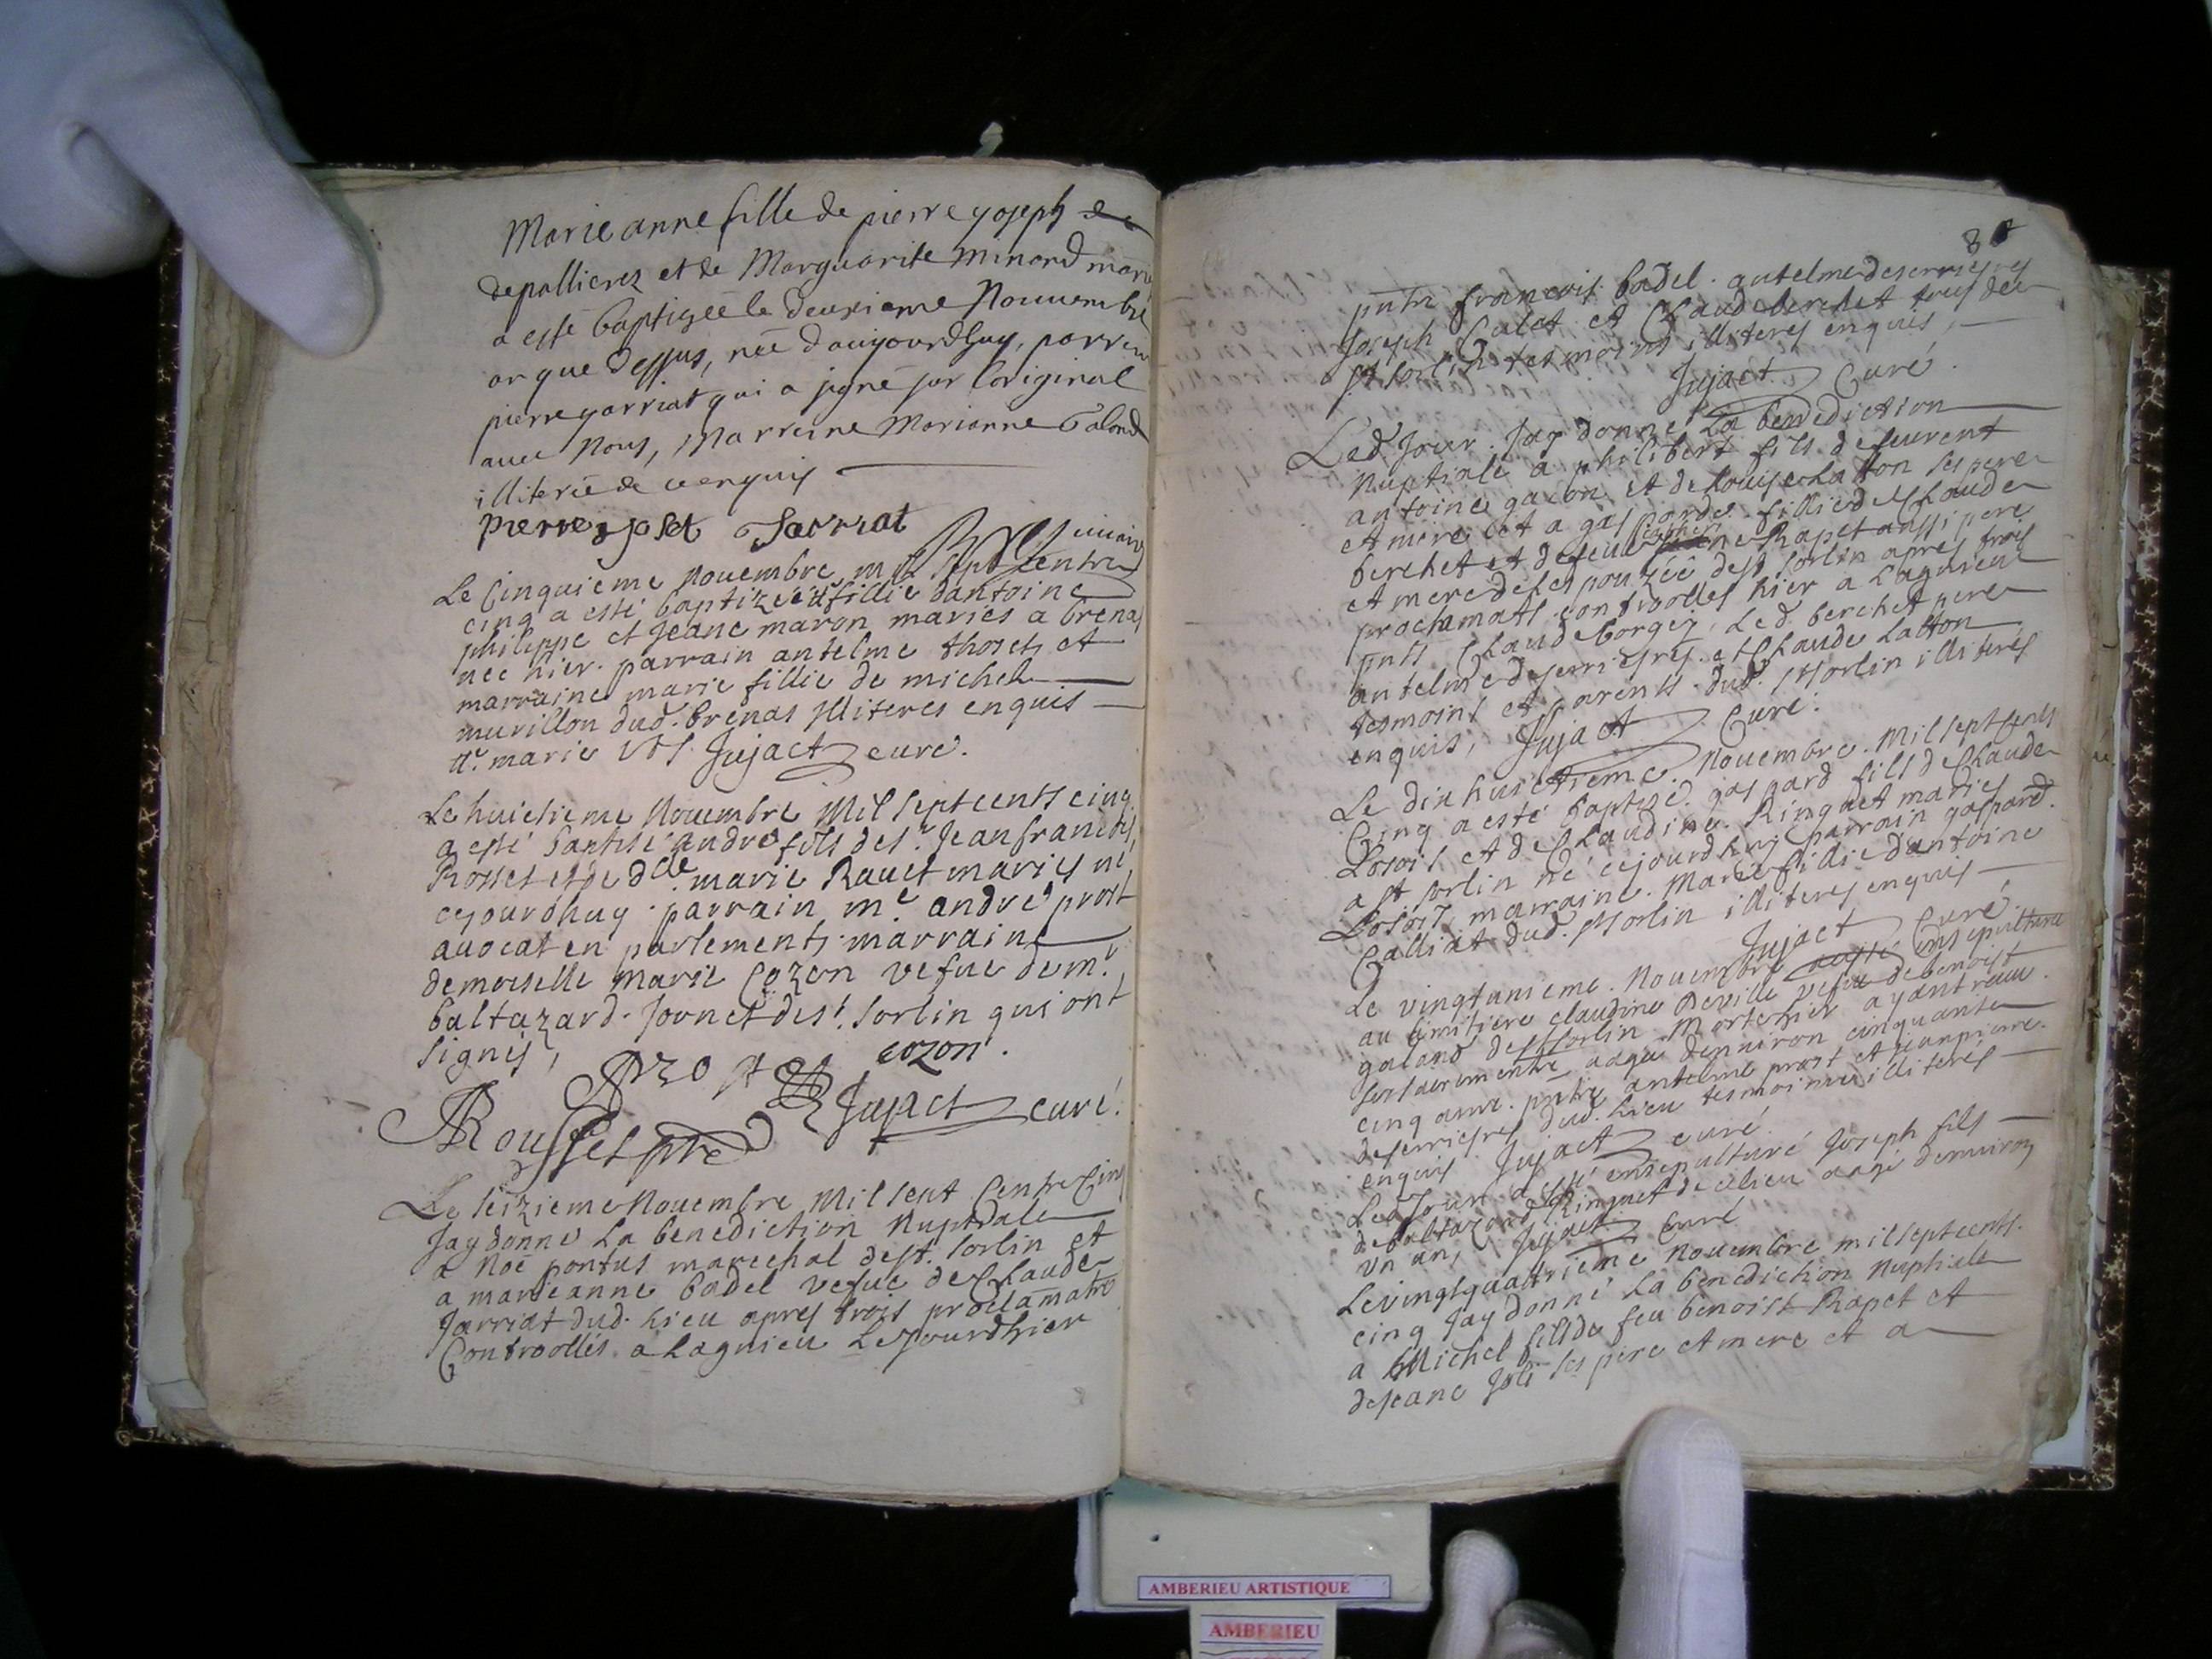 Marie anne fille de pierre joseph de
depollierez et de Marguarite minard marié
a esté baptizeé le deuxieme Nouuembre
an que dessus, neé daujourdhuy, parrein
pierre jarriat qui a signé sur loriginal
auec Nous, Marreine Marianne Galand
illiterée de ce enquis
pierre joset Jarriat
Le Cinquieme nouembre mil sept centre
cinq a esté baptizée fillie dantoine
philippe et jeane maron mariés a brenas
nee hier. parrain antelme thoset et
marraine marie fillie de michel
murillon dud. brenas illiteres enquis
marie Jujact curé.
Le huictieme Nouembre Mil sept cents cinq
a esté baptisé andré fils de sr. Jean francois
Rosset et de dlle. marie Rauet mariés né
cejourdhuy. parrain me. andré prost
auocat en parlements marraine
demoiselle marie Cozon vefue de mr.
baltazard Jornet de st. Sorlin qui ont
signés,
Prost cozon.
Rousset ptre Jujact curé.
Le seizieme Nouembre Mil sept Centre Cinq
Jay donné La benediction Nuptiale
a Noé pontus marechal de st. Sorlin et
a marieanne badel vefue de Claude
Jarriat dud. Lieu apres trois proclamatn
Controollés a Lagnieu Lejourdhier
8
pntn francois badel. antelme deserrieres
Joseph Culet et Claude berchet tous de
st Sorlin tesmoins illiteres enquis,
Jujact Curé.
Led Jour. Jay donné La benediction
Nuptiale a philibert fils de feu
antoine galon et de Louise Latton ses pere
et mere et a gasparde fillie de Claude
berchet et de feue Rapet aussi pere
et mere de Lespouzée de st Sorlin apres trois
proclamats controolles hier a Lagnieu
pnts Claude borgey, Led. berchet pere
antelme deserrieres et Claude Latton
tesmoins et parents dud. st Sorlin illiterés
enquis, Jujact Curé.
Le dix huictieme Nouembre. Mil sept cents
Cinq a esté baptisé gaspard fils de Claude
Losois et de Claudine Ringuet mariés
a st Sorlin né cejourdhuy parrain gaspard
Losois marraine. Marie fillie dantoine
Calliat dud. st Sorlin illiteres enquis
Jujact Curé.
Le vingtunieme. Nouembre a esté ensepulturee
au cimitiere claudine Deville vefue de benoist
galand de st Sorlin morte hier ayant receu
ses sacrements aagée denuiron cinquante
cinq ans. pntre antelme prost et jeanpierre
deserrieres dud. Lieu tesmoins illiterés
enquis Jujact curé.
Led Jour a esté ensepulturé Joseph fils
de baltazard Ringuet de ce lieu aagé denuiron
vn an, Jujact Curé
Le vingtquattrieme Nouembre mil sept cents.
cinq Jay donné La benediction Nuptiale
a Michel fils de feu benoist Rapet et
de Jeane Joli ses pere et mere et a
AMBERIEU ARTISTIQUE
AMBERIEU